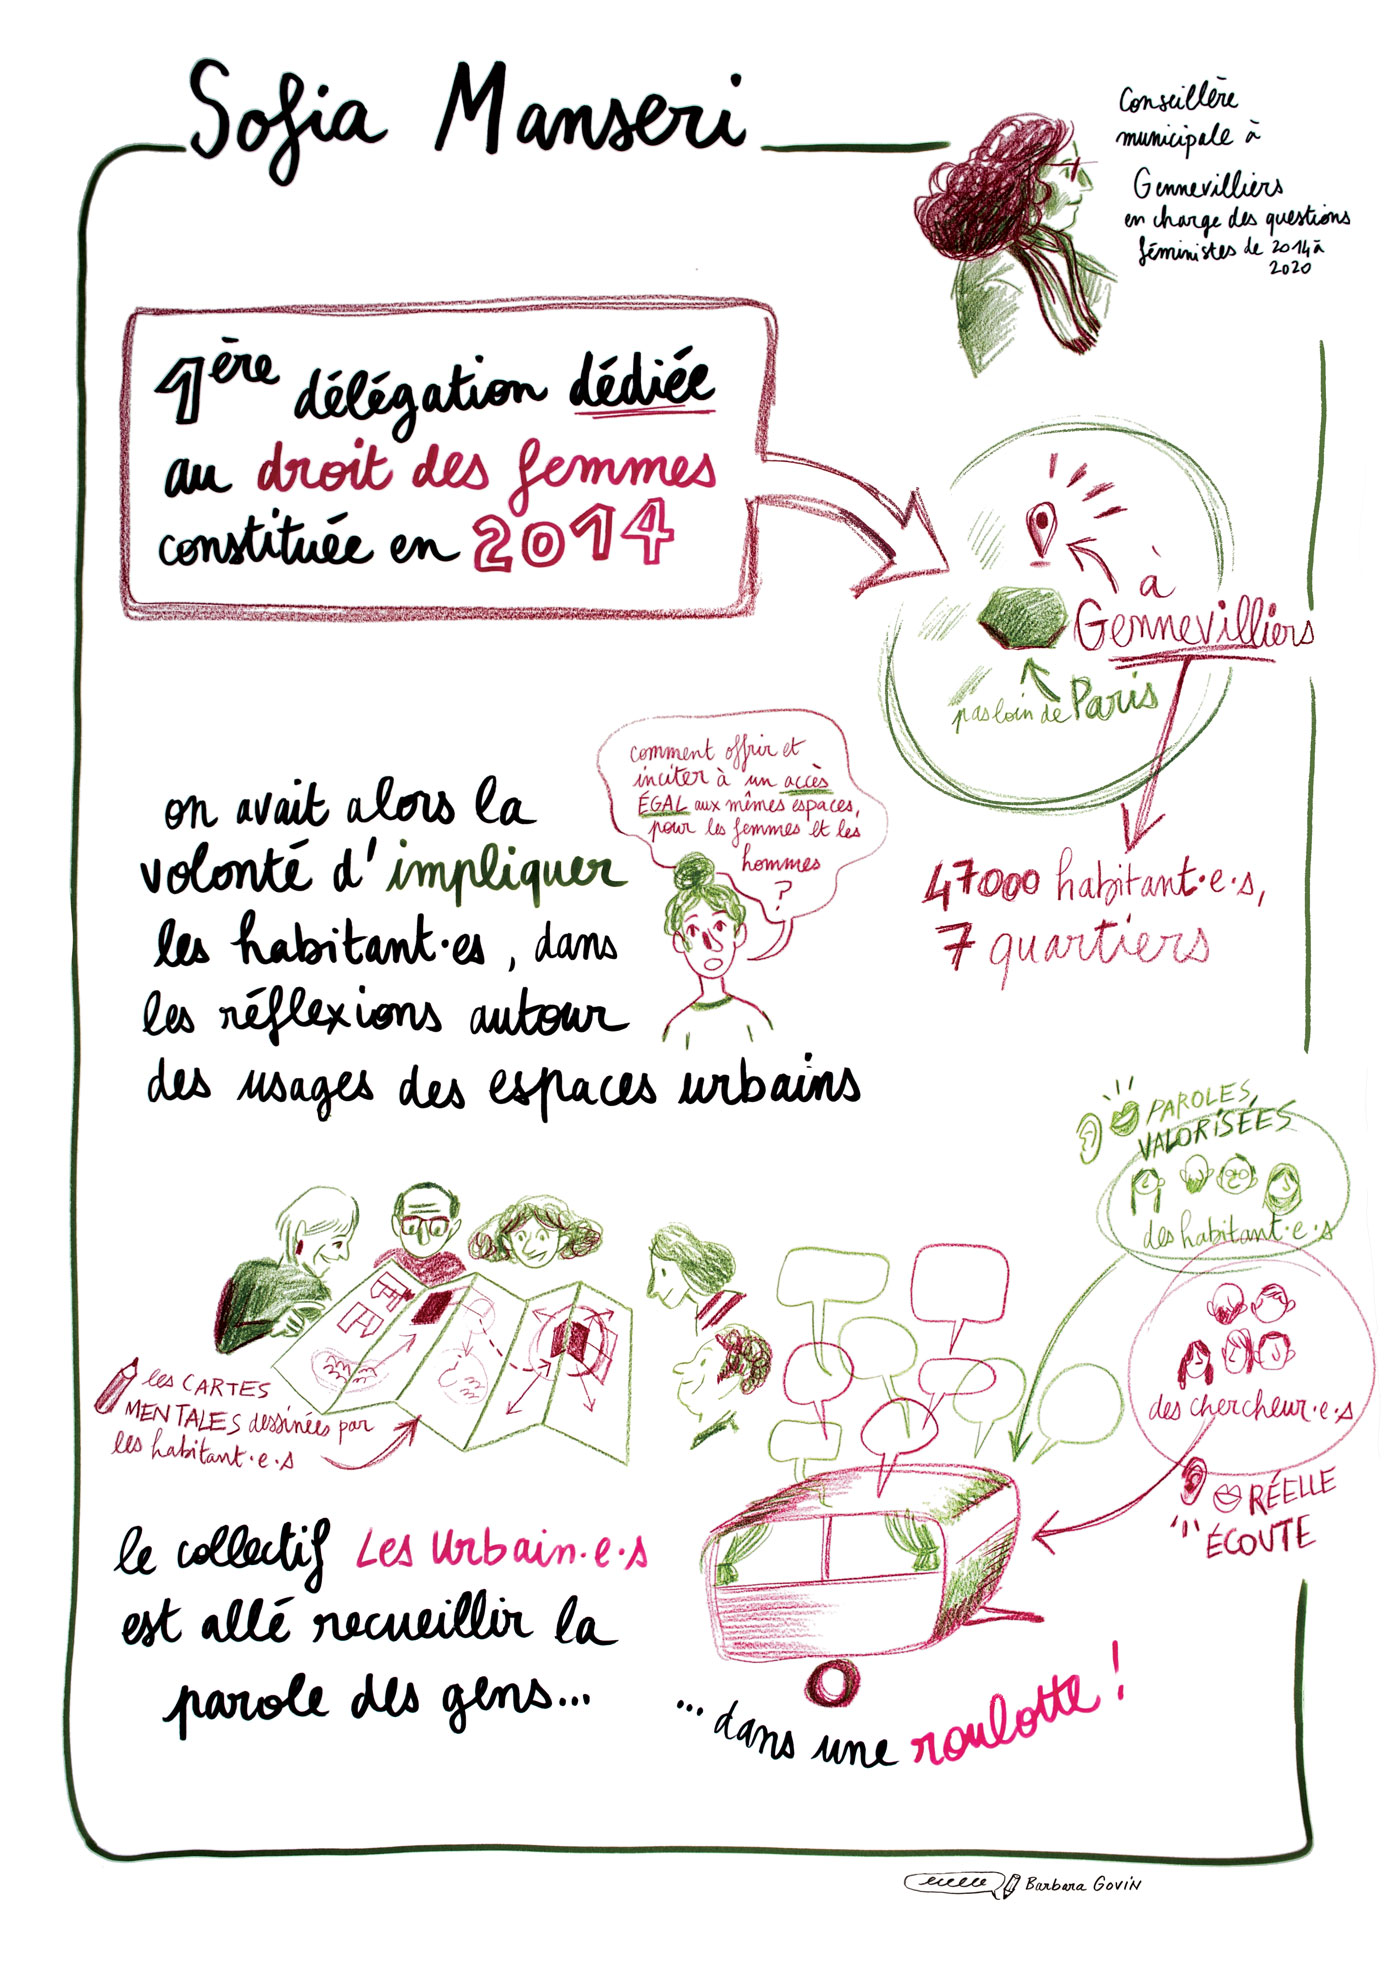 Sofia Manseri
Conseillère
municipale à
Gennevilliers
en charge des questions
féministes de 2014 à
2020
1ère délégation dédiée
au droit des femmes
constituée en 2014
à
Gennevilliers
pas loin de Paris
47000 habitant·e·s,
7 quartiers
comment offrir et
inciter à un accès
ÉGAL aux mêmes espaces,
pour les femmes et les
hommes
?
on avait alors la
volonté d'impliquer
les habitant·es, dans
les réflexions autour
des usages des espaces urbains
PAROLES,
VALORISÉES
des habitant·e·s
des chercheur·e·s
RÉELLE
ÉCOUTE
les CARTES
MENTALES dessinées par
les habitant·e·s
le collectif Les Urbain·e·s
est allé recueillir la
parole des gens...
... dans une roulotte !
Barbara GOVIN